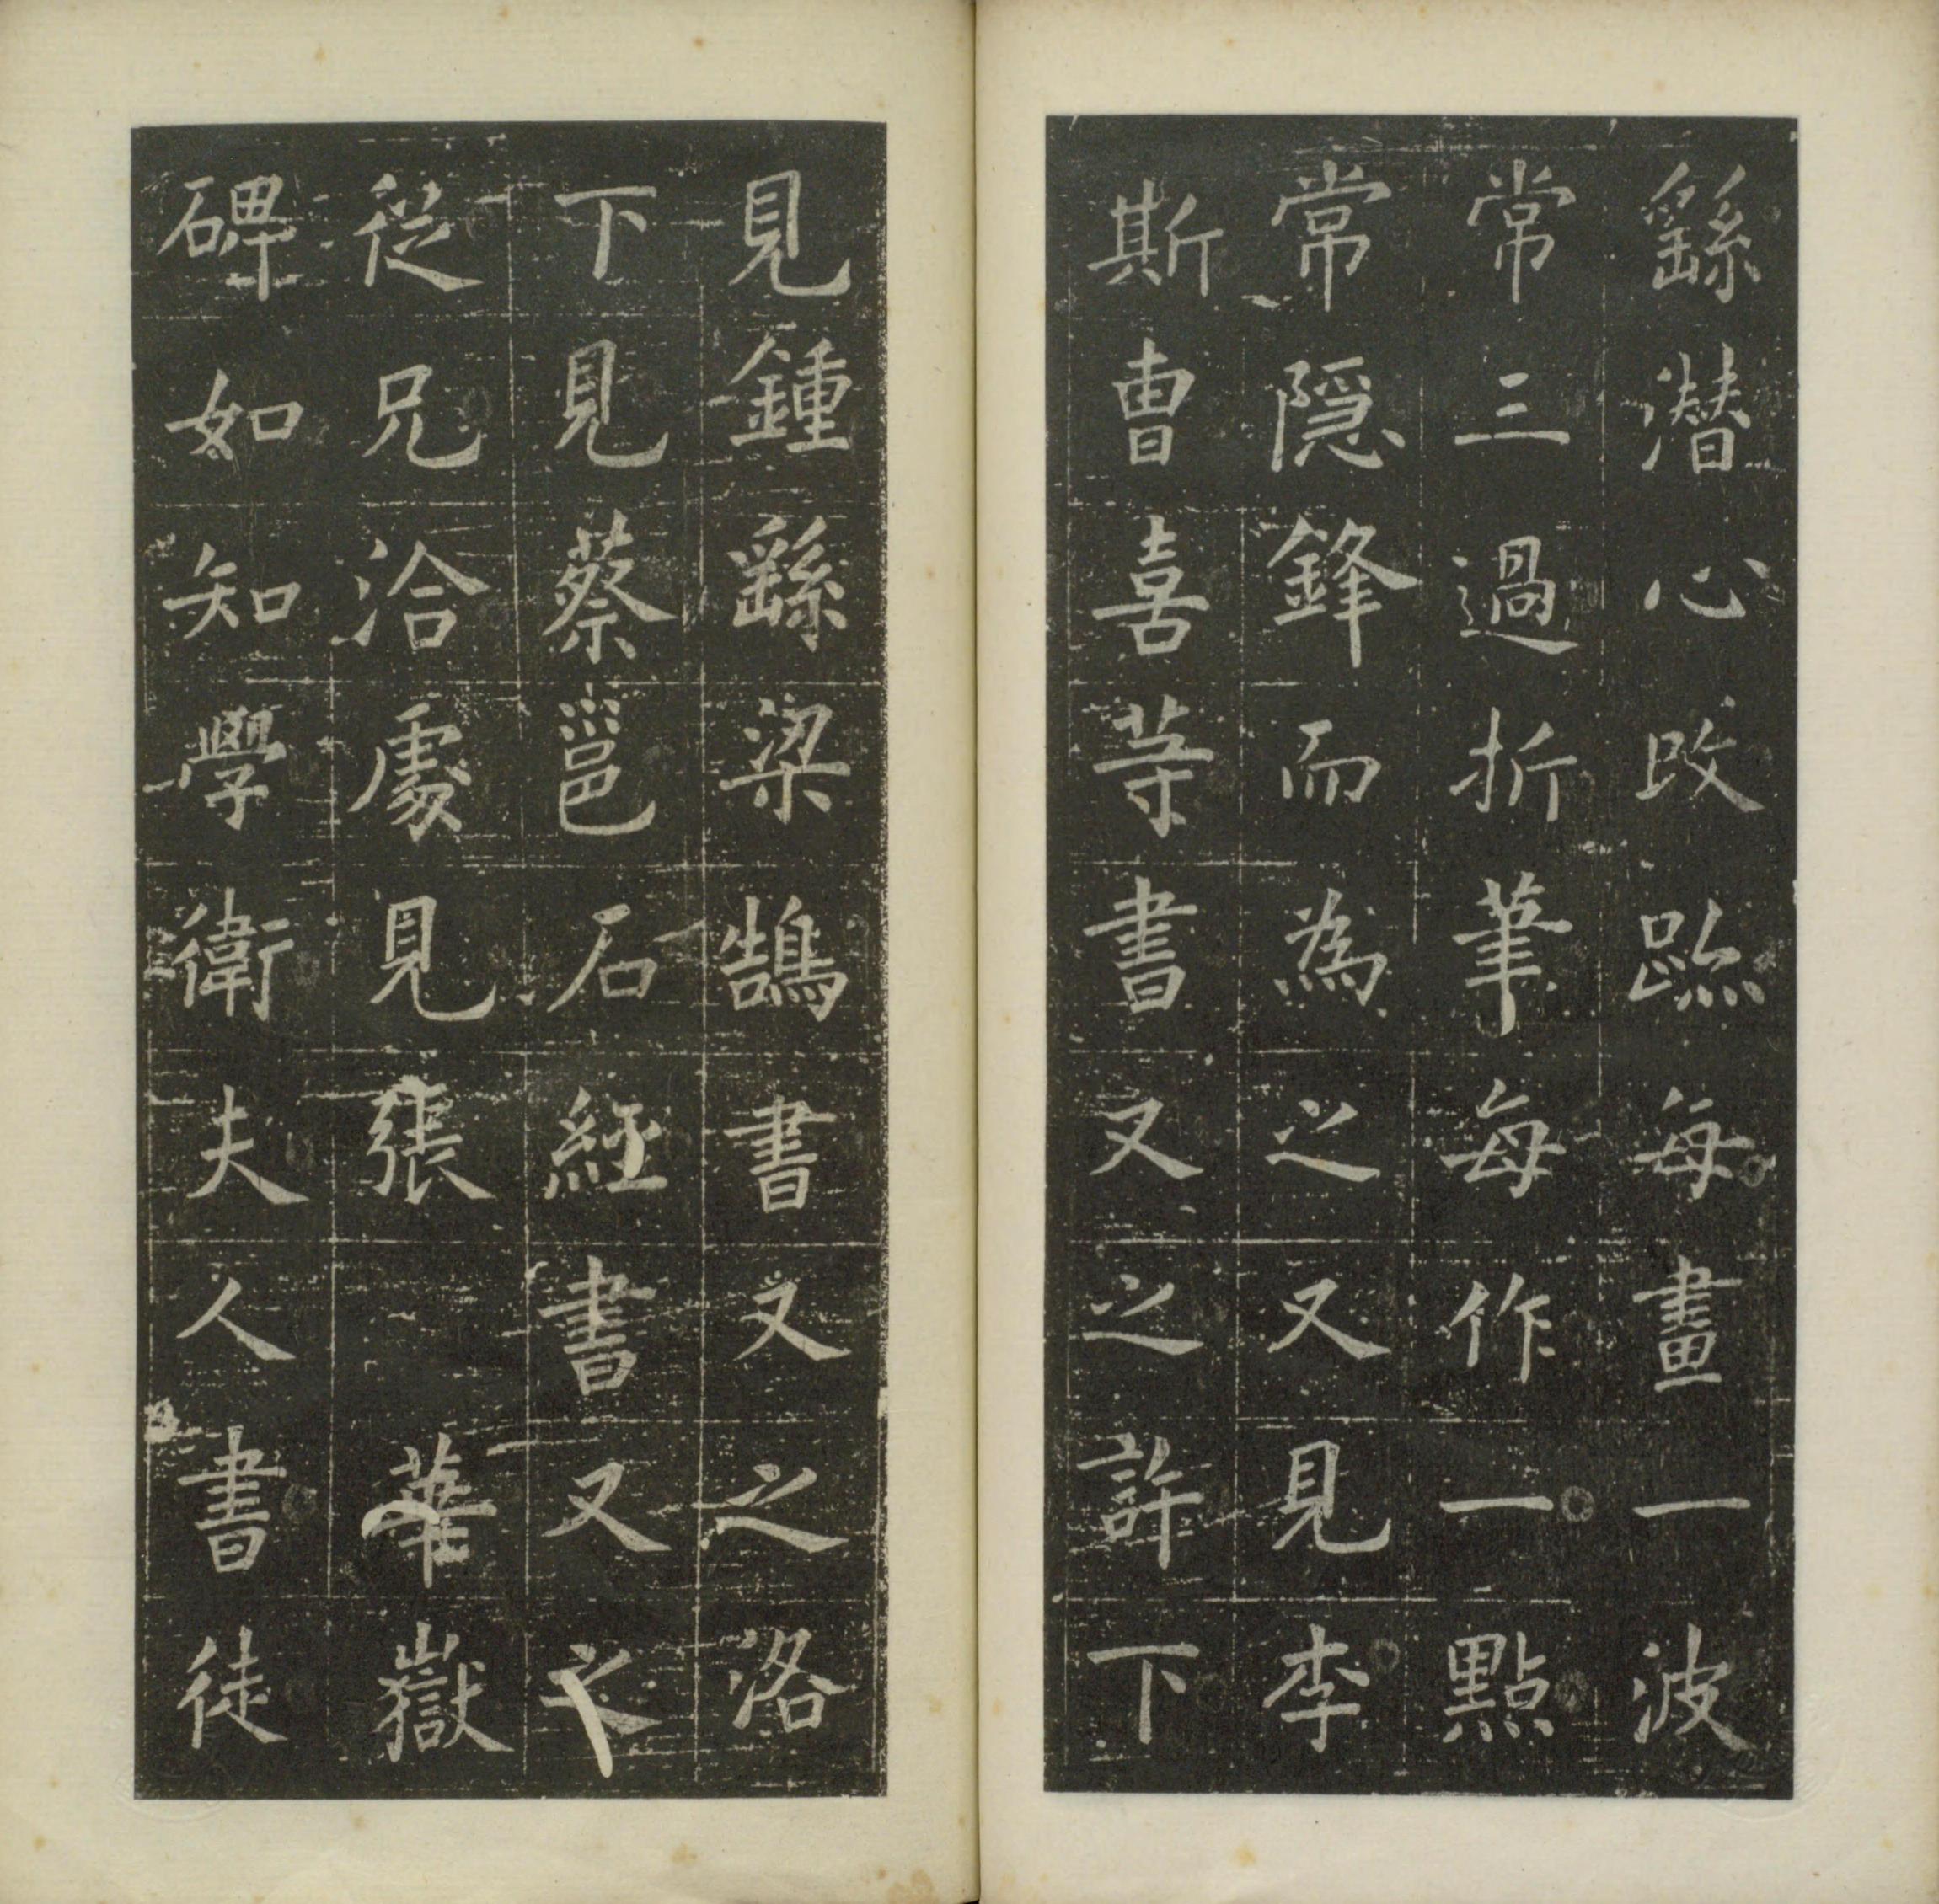 繇潛心改跡每畫一波
常三過折筆每作一點
常隱鋒而為之又見李
斯曹喜等書又之許下
見鍾繇梁鵠書又之洛
下見蔡邕石經書又之
從兄洽處見張華嶽
碑如知學衛夫人書徒